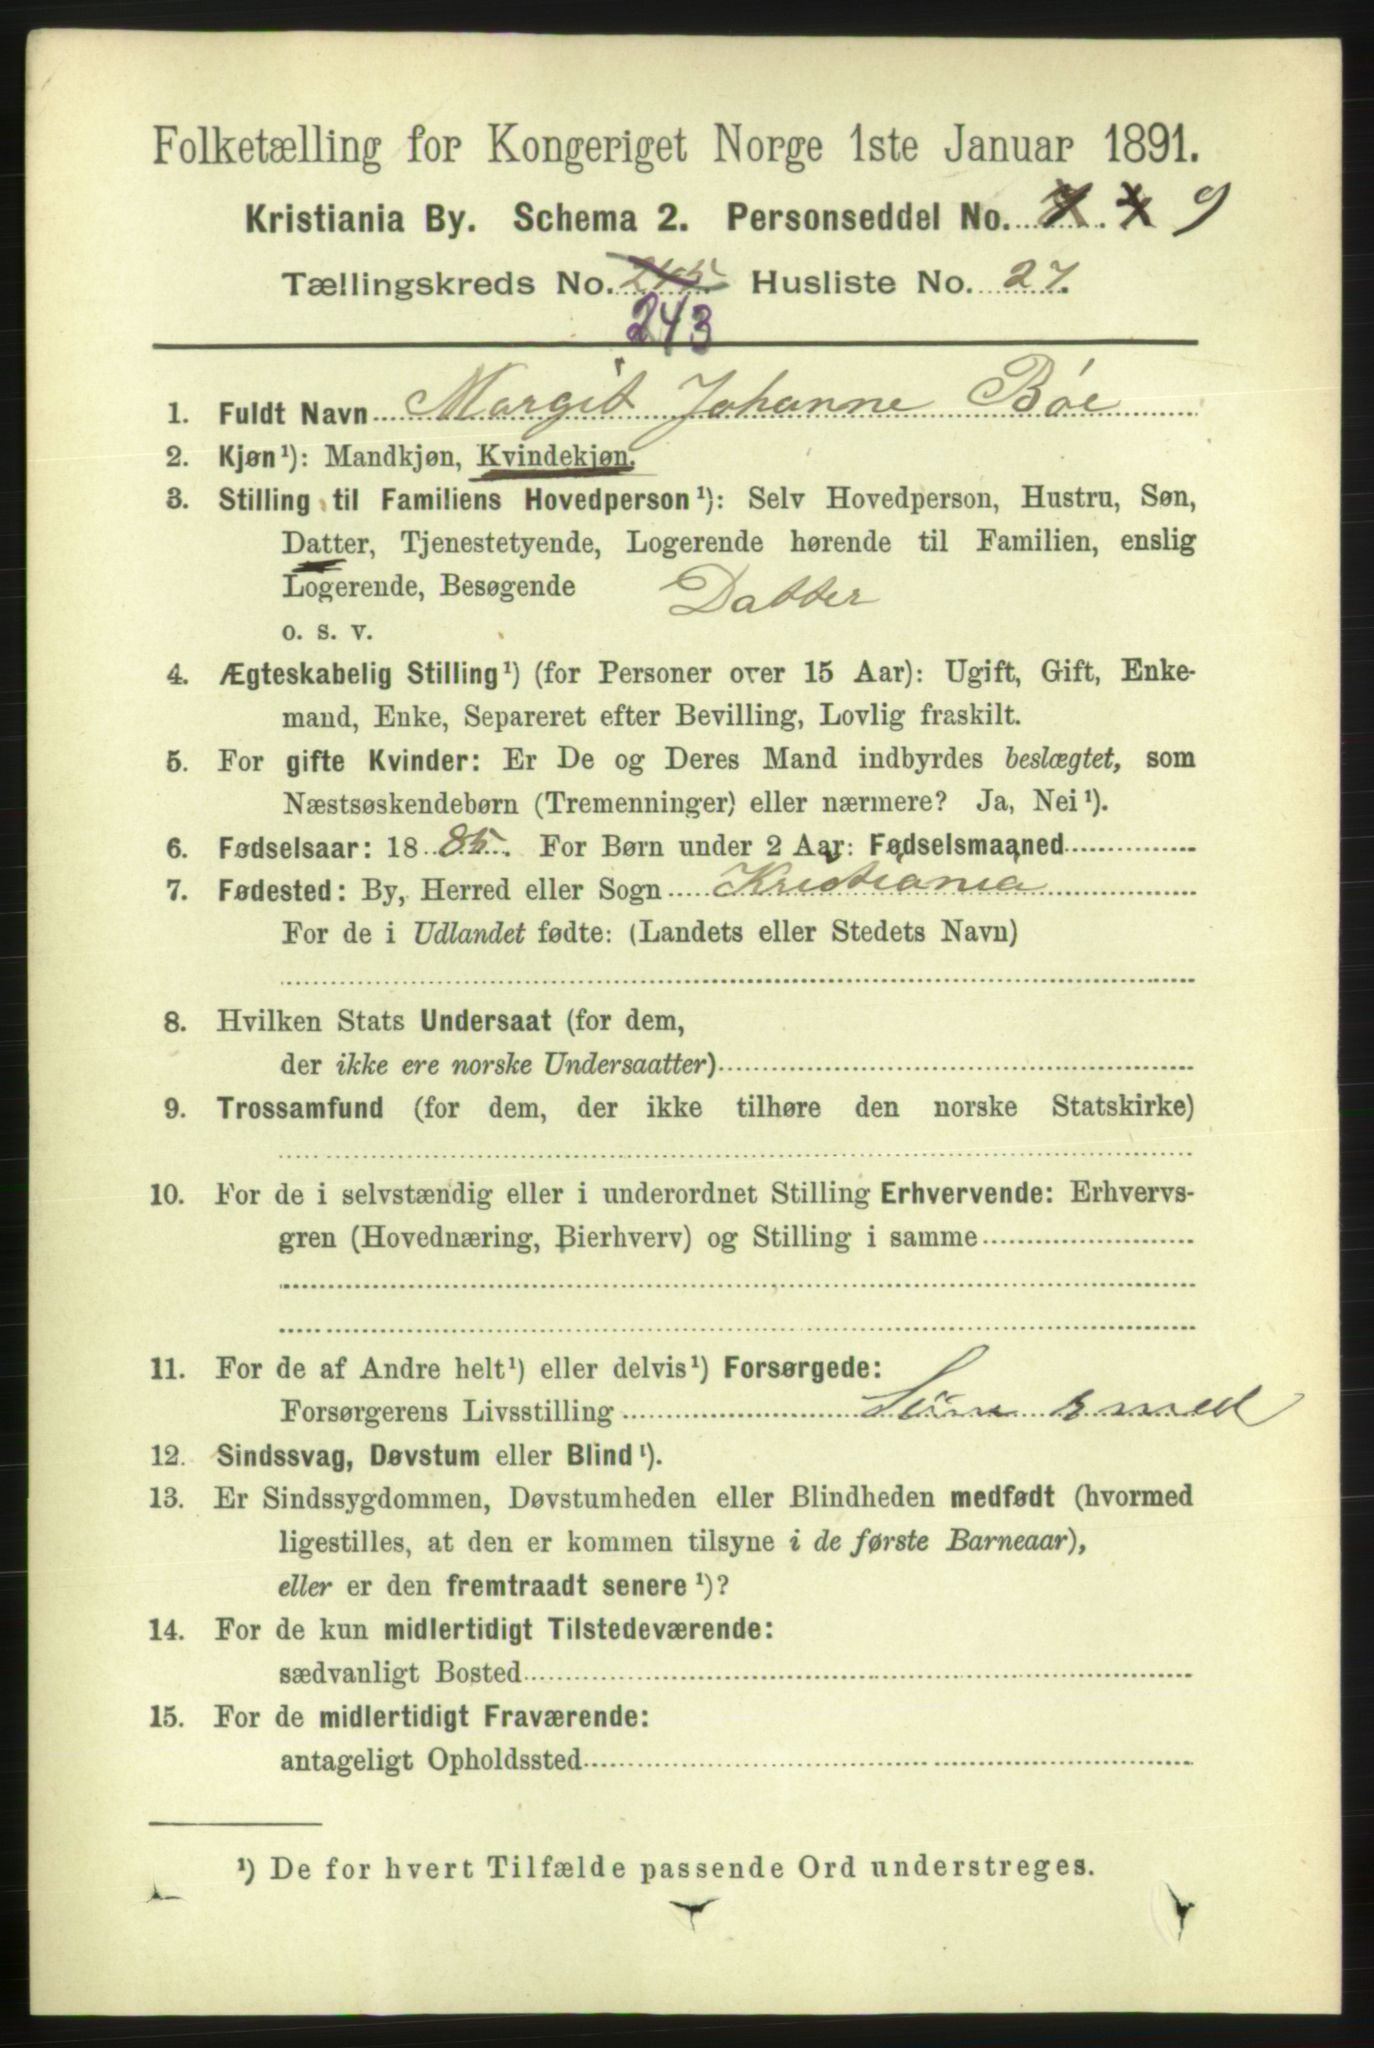 Folketælling for Kongeriget Norge 1ste Januar 1891.
Kristiania By. Schema 2. Personseddel No. 9
Tællingskreds No. 245 Husliste No. 27.
243
1. Fuldt Navn Margit Johanne Bøe
2. Kjøn¹): Mandkjøn, Kvindekjøn.
3. Stilling til Familiens Hovedperson¹): Selv Hovedperson, Hustru, Søn,
Datter, Tjenestetyende, Logerende hørende til Familien, enslig
Logerende, Besøgende Datter
o. s. v.
4. Ægteskabelig Stilling¹) (for Personer over 15 Aar): Ugift, Gift, Enke-
mand, Enke, Separeret efter Bevilling, Lovlig fraskilt.
5. For gifte Kvinder: Er De og Deres Mand indbyrdes beslægtet, som
Næstsøskendebørn (Tremenninger) eller nærmere? Ja, Nei¹).
6. Fødselsaar: 1885. For Børn under 2 Aar: Fødselsmaaned
7. Fødested: By, Herred eller Sogn Kristiania
For de i Udlandet fødte: (Landets eller Stedets Navn)
8. Hvilken Stats Undersaat (for dem,
der ikke ere norske Undersaatter)
9. Trossamfund (for dem, der ikke tilhøre den norske Statskirke)
10. For de i selvstændig eller i underordnet Stilling Erhvervende: Erhvervs-
gren (Hovednæring, Bierhverv) og Stilling i samme
11. For de af Andre helt¹) eller delvis¹) Forsørgede:
Forsørgerens Livsstilling smed
12. Sindssvag, Døvstum eller Blind¹).
13. Er Sindssygdommen, Døvstumheden eller Blindheden medfødt (hvormed
ligestilles, at den er kommen tilsyne i de første Barneaar),
eller er den fremtraadt senere¹)?
14. For de kun midlertidigt Tilstedeværende:
sædvanligt Bosted
15. For de midlertidigt Fraværende:
antageligt Opholdssted
¹) De for hvert Tilfælde passende Ord understreges.